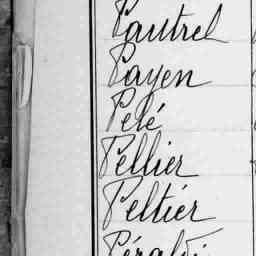 Pautrel
Payen
Pelé
Pellier
Peltiér
Péraldi